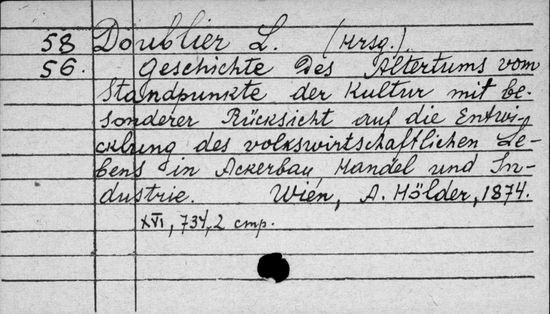 58 Doublier L. (Hrsg.).
56. Geschichte des Altertums vom
Standpunkte der Kultur mit be-
sonderer Rücksicht auf die Entwi-
cklung des volkswirtschaftlichen Le-
bens in Ackerbau, Handel und In-
dustrie. Wien, A. Hölder, 1874.
XVI, 734, 2 стр.